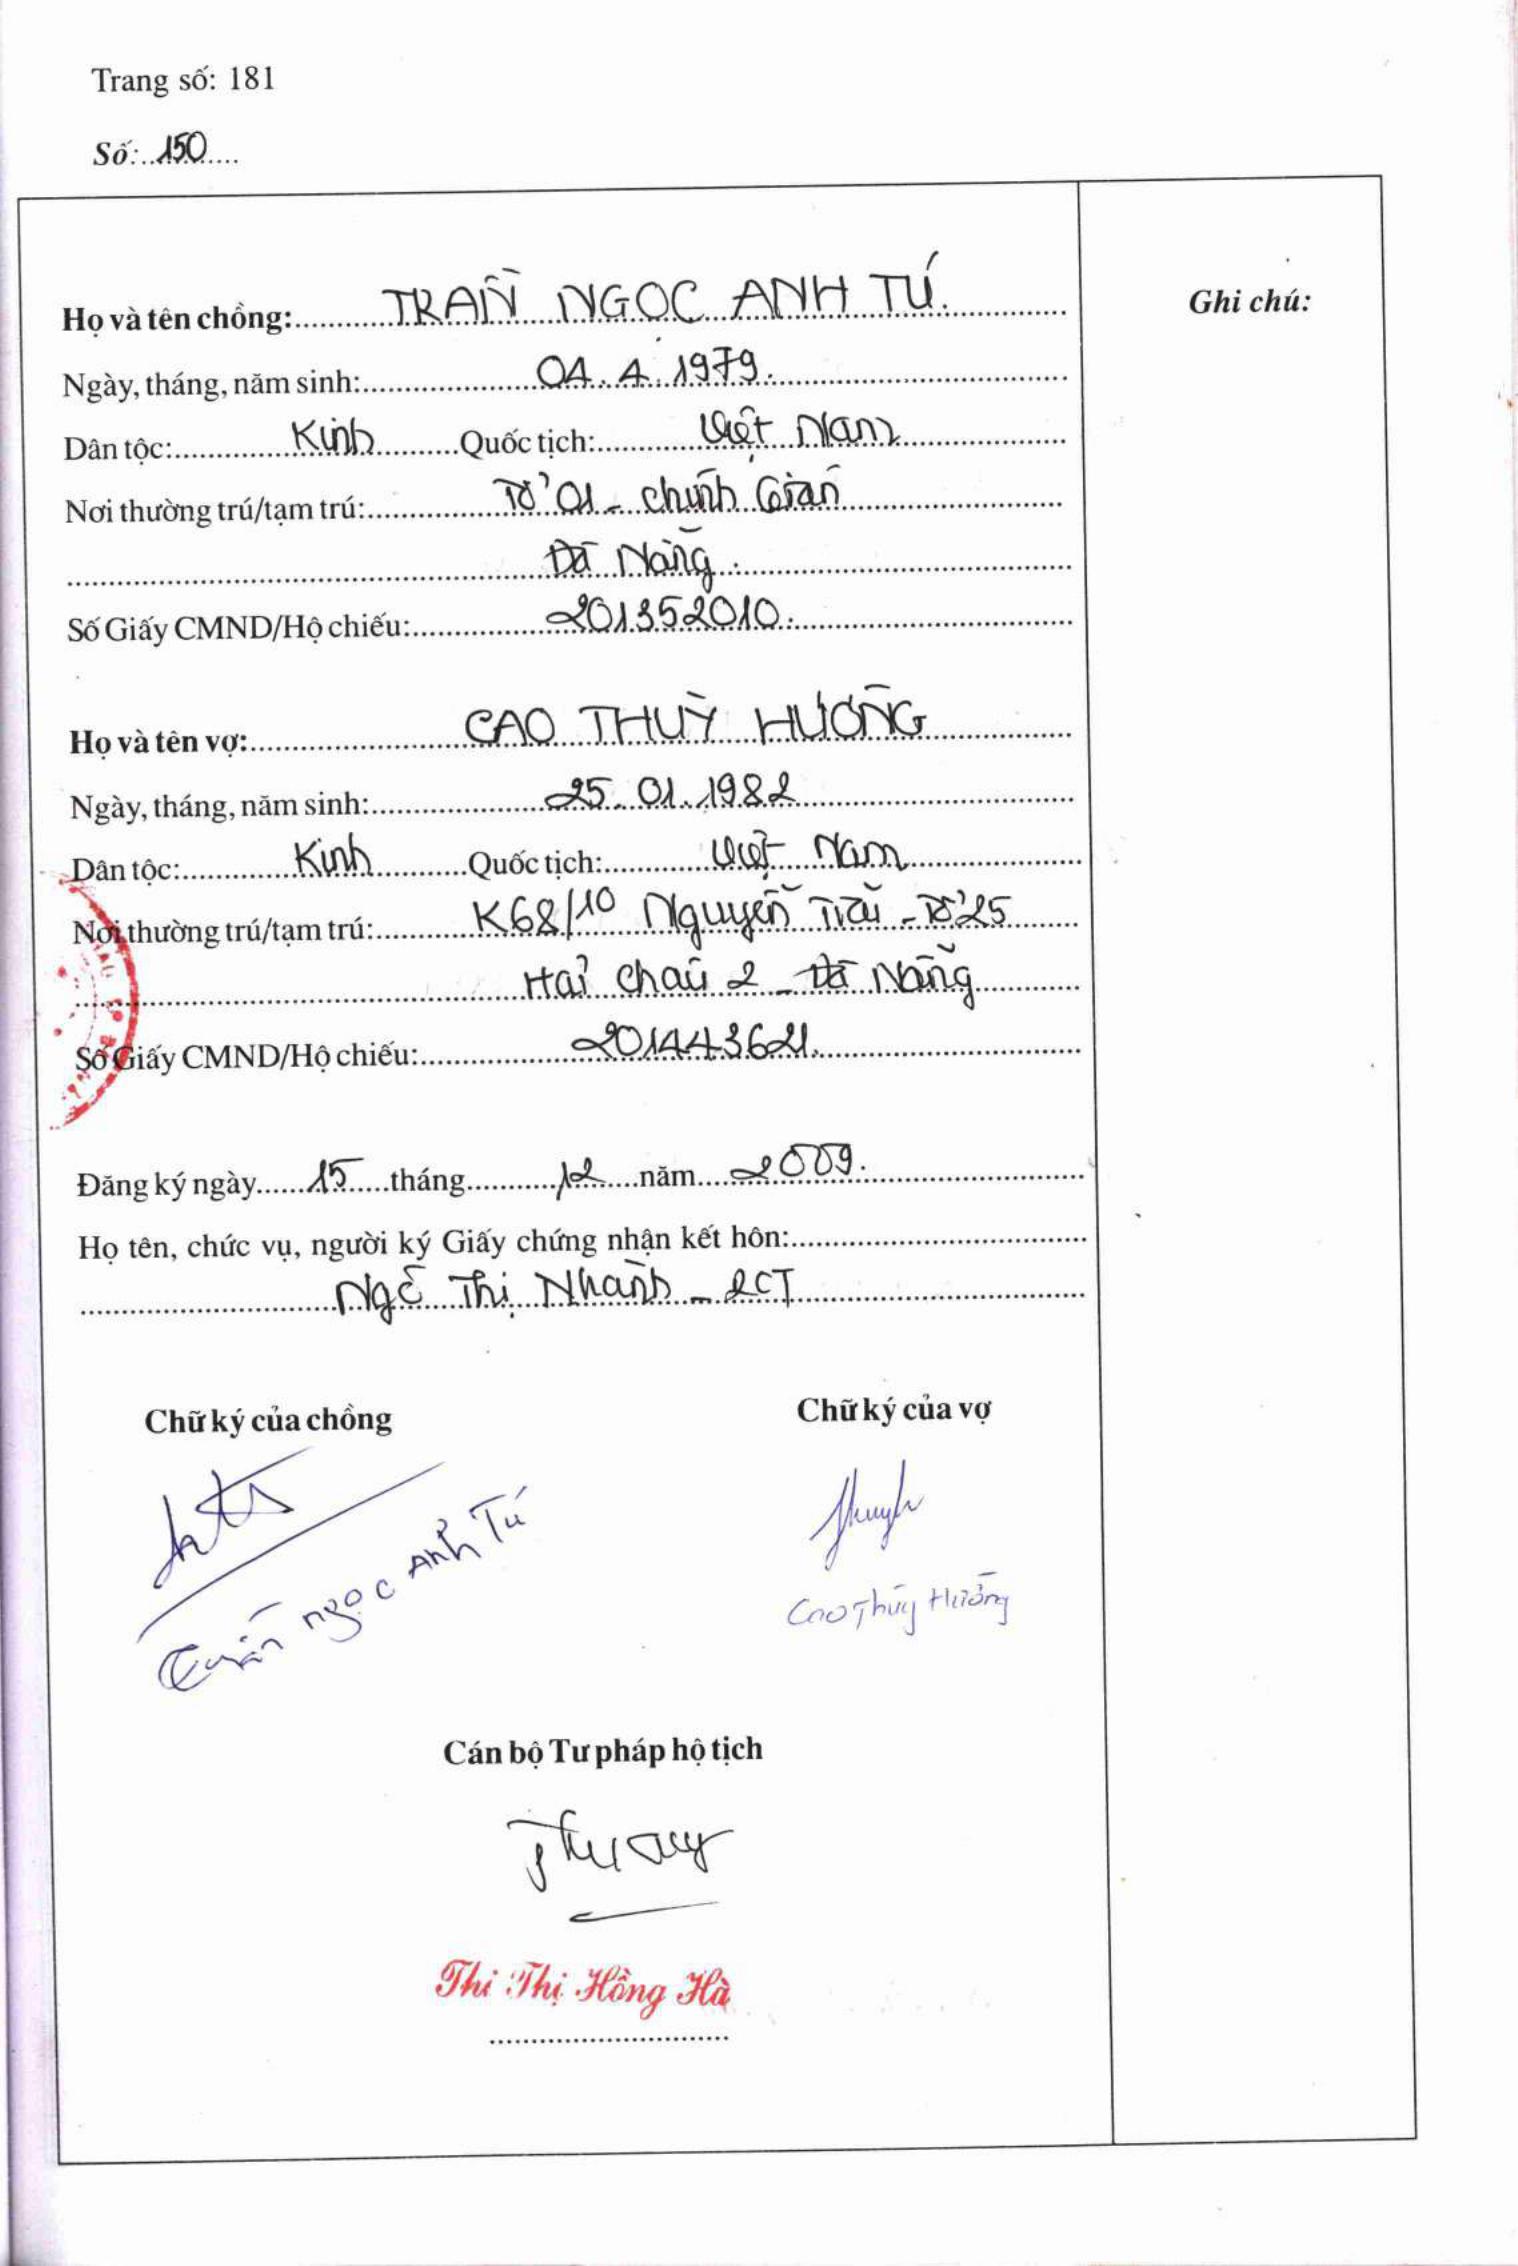 Trang số: 181
Số: 150
Họ và tên chồng: TRẦN NGỌC ANH TÚ.
Ghi chú:
Ngày, tháng, năm sinh: 04.4.1979.
Dân tộc: Kinh Quốc tịch: Việt Nam
Nơi thường trú/tạm trú: Tổ 01 - Chính Gián
Đà Nẵng.
Số Giấy CMND/Hộ chiếu: 201352010.
Họ và tên vợ: CAO THUỲ HƯƠNG
Ngày, tháng, năm sinh: 25.01.1982
Dân tộc: Kinh Quốc tịch: Việt Nam
Nơi thường trú/tạm trú: K68/10 Nguyễn Trãi - Tổ 25
Hải Châu 2 - Đà Nẵng
Số Giấy CMND/Hộ chiếu: 201443621.
Đăng ký ngày 15 tháng 12 năm 2009.
Họ tên, chức vụ, người ký Giấy chứng nhận kết hôn:
Ngô Thị Nhành - PCT
Chữ ký của chồng
Chữ ký của vợ
Trần Ngọc Anh Tú
Cao Thùy Hương
Cán bộ Tư pháp hộ tịch
Thi Thị Hồng Hà